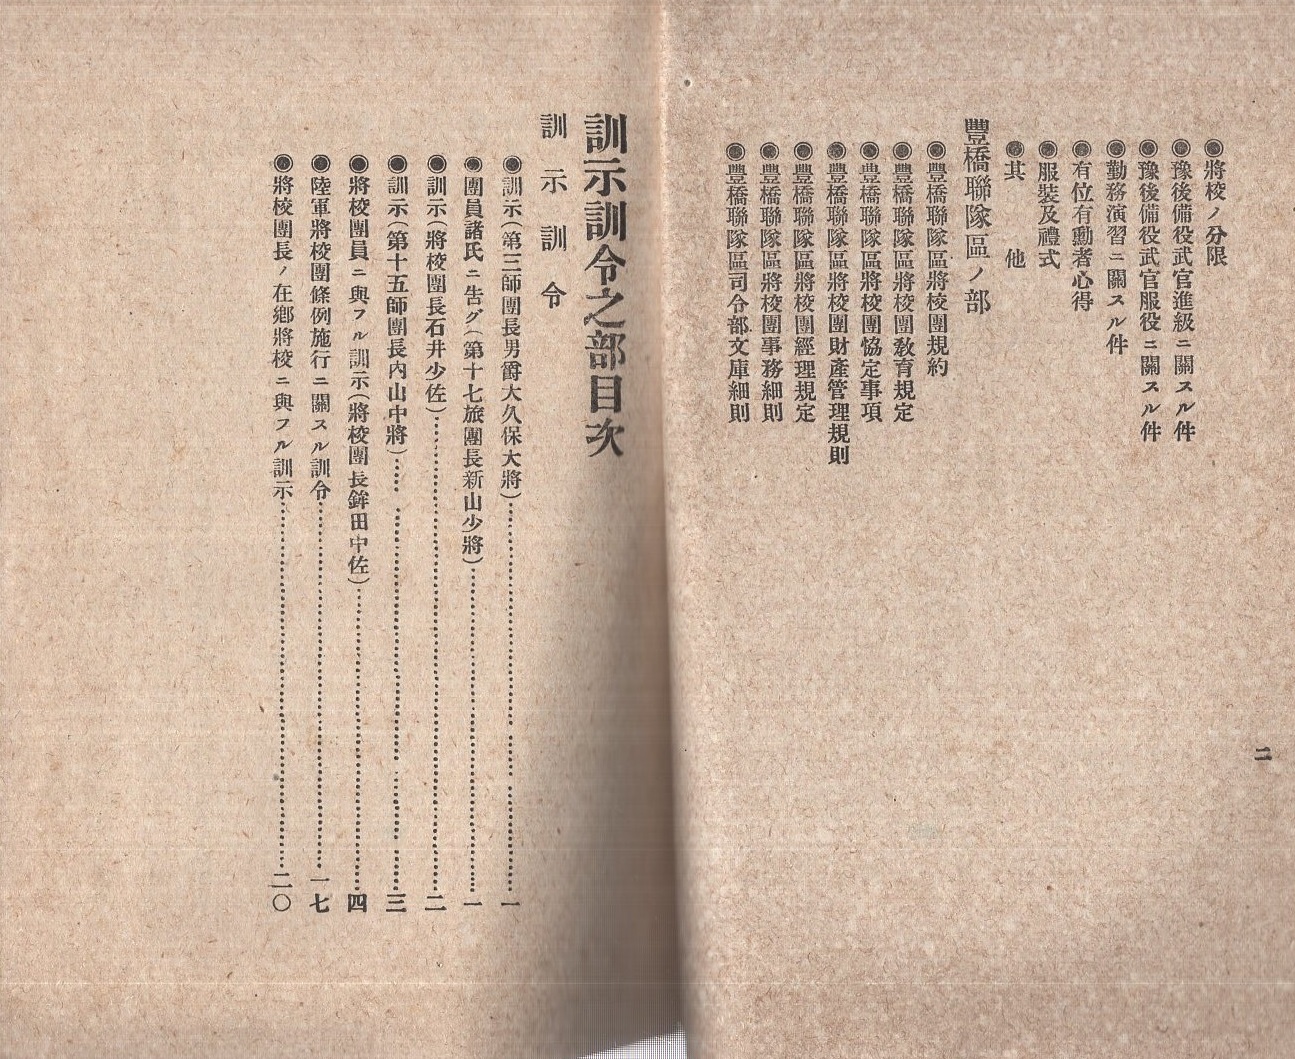 二
◉將校ノ分限
◉豫後備役武官進級ニ關スル件
◉豫後備役武官服役ニ關スル件
◉勤務演習ニ關スル件
◉有位有勳者心得
◉服裝及禮式
◉其他
豐橋聯隊區ノ部
◉豐橋聯隊區將校團規約
◉豐橋聯隊區將校團敎育規定
◉豐橋聯隊區將校團協定事項
◉豐橋聯隊區將校團財產管理規則
◉豐橋聯隊區將校團經理規定
◉豐橋聯隊區將校團事務細則
◉豐橋聯隊區司令部文庫細則
訓示訓令之部目次
訓示訓令
◉訓示(第三師團長男爵大久保大將)……一
◉團員諸氏ニ吿グ(第十七旅團長新山少將)……一
◉訓示(將校團長石井少佐)……二
◉訓示(第十五師團長內山中將)……三
◉將校團員ニ與フル訓示(將校團長鉾田中佐)……四
◉陸軍將校團條例施行ニ關スル訓令……一七
◉將校團長ノ在鄕將校ニ與フル訓示……二〇